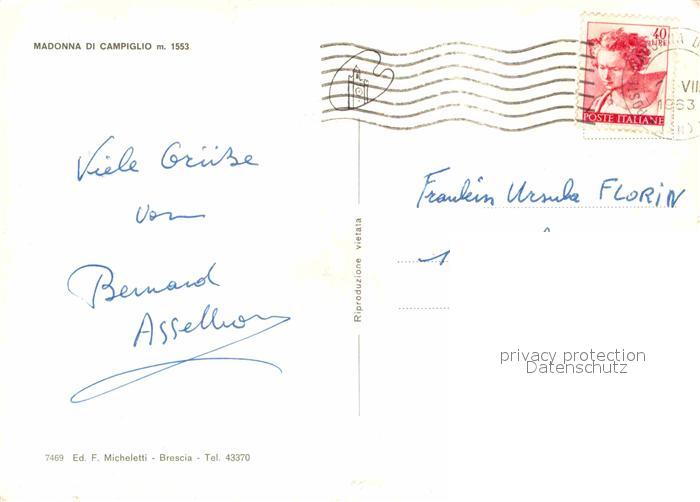 MADONNA DI CAMPIGLIO m. 1553
40
LIRE
POSTE ITALIANE
VII
1963
Viele Grüße
von
Bernard
Riproduzione vietata
Fraulein Ursula FLORIN
privacy protection
Datenschutz
7469 Ed. F. Micheletti - Brescia - Tel. 43370